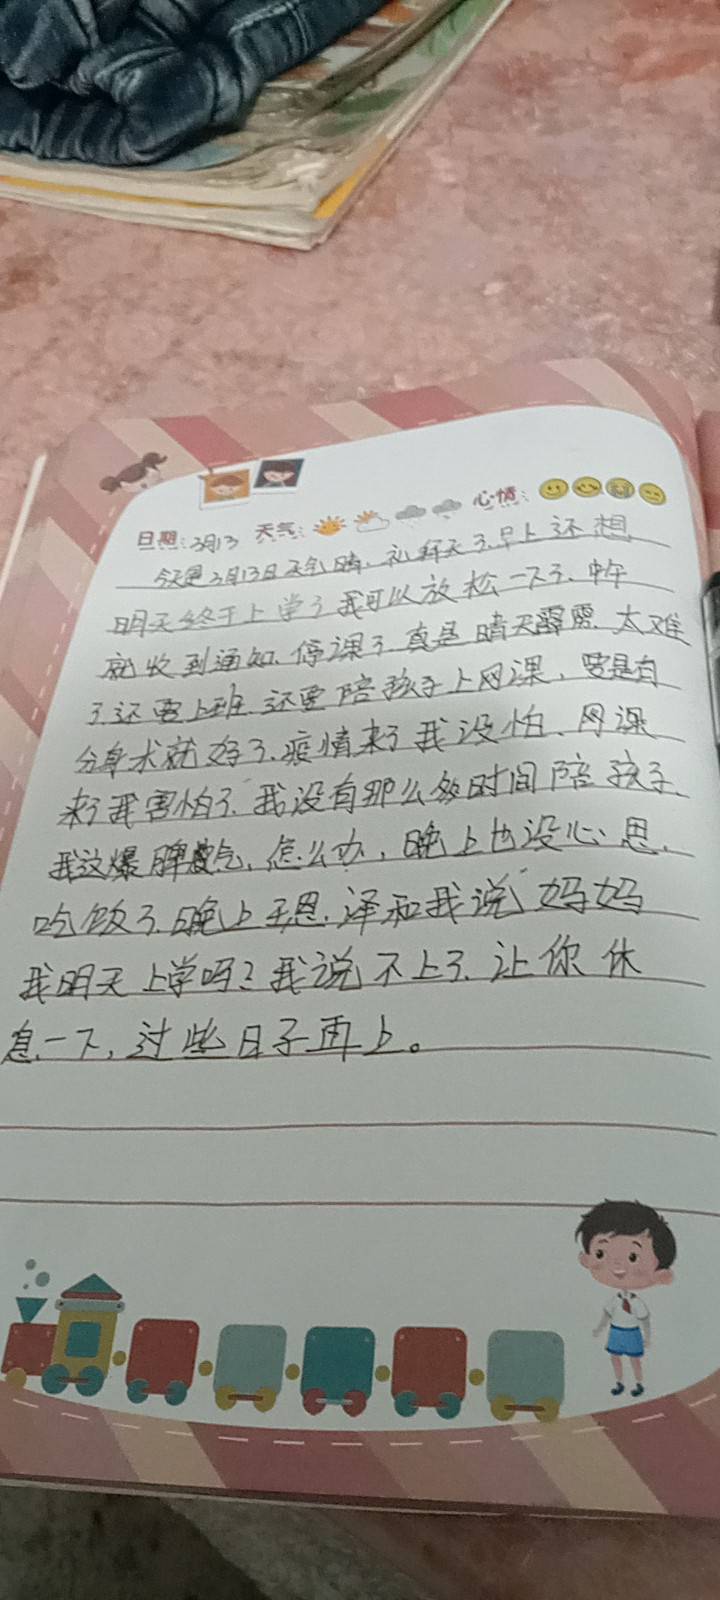 日期:3月13 天气: 心情:
今天是3月13日天气晴.礼拜天了.早上还想.
明天终于上学了我可以放松一下了.中午
就收到通知.停课了.真是晴天霹雳.太难
了.还要上班.还要陪孩子上网课,要是有
分身术就好了.疫情来了我没怕、网课
来了我害怕了.我没有那么多时间陪孩子.
我这爆脾气,怎么办,晚上也没心思.
吃饭了.晚上.泽和我说妈妈
我明天上学吗?我说不上了.让你休
息一下,过些日子再上。